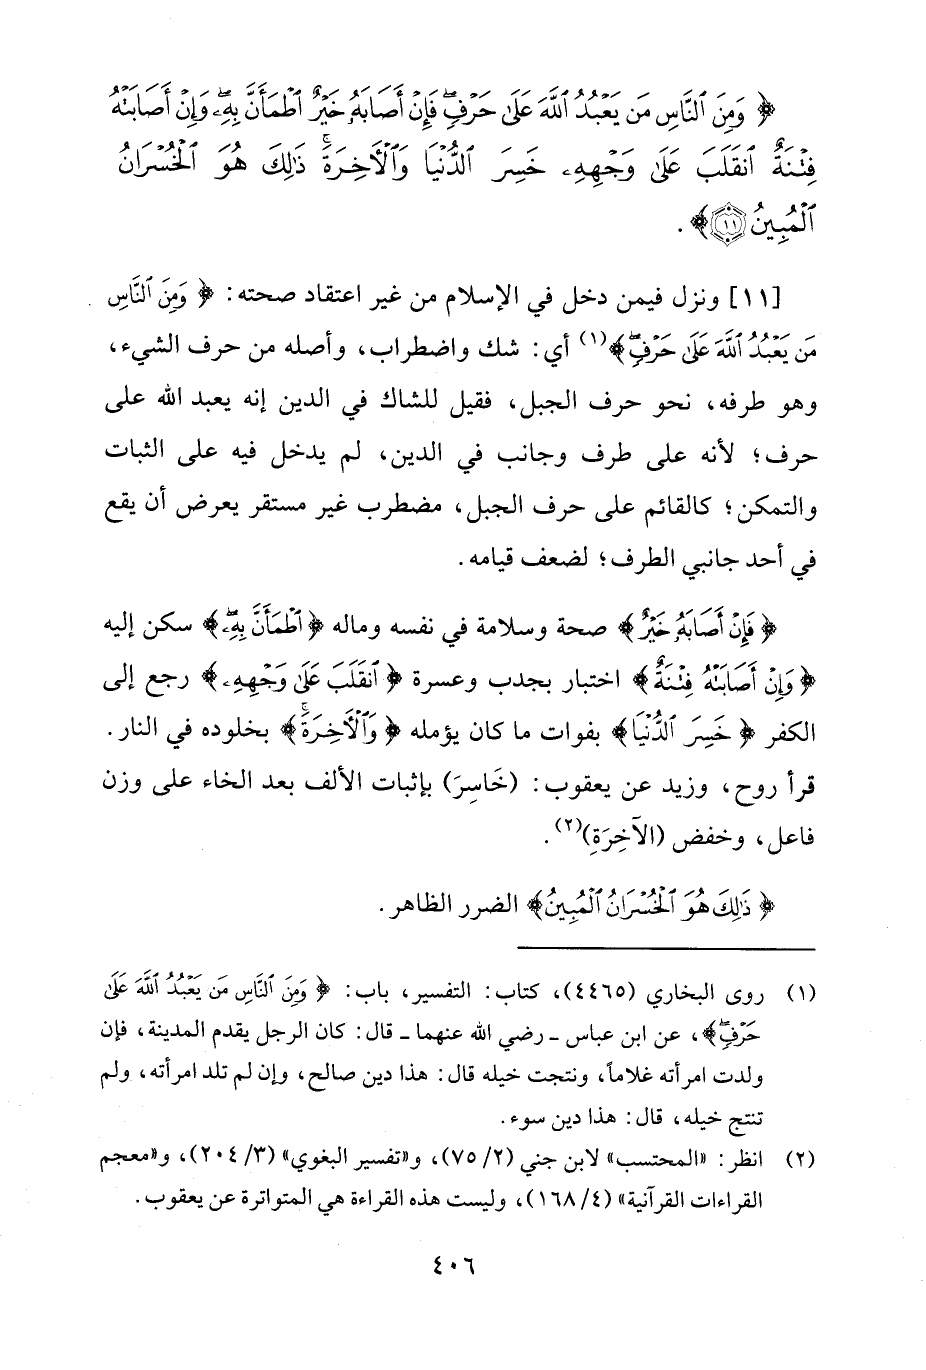 ﴿ وَمِنَ ٱلنَّاسِ مَن يَعْبُدُ ٱللَّهَ عَلَىٰ حَرْفٍۖ فَإِنْ أَصَابَهُۥ خَيْرٌ ٱطْمَأَنَّ بِهِۦۖ وَإِنْ أَصَابَتْهُ
فِتْنَةٌ ٱنقَلَبَ عَلَىٰ وَجْهِهِۦ خَسِرَ ٱلدُّنْيَا وَٱلْأَخِرَةَۚ ذَٰلِكَ هُوَ ٱلْخُسْرَانُ
ٱلْمُبِينُ ١١ ﴾ .
[١١] ونزل فيمن دخل في الإسلام من غير اعتقاد صحته : ﴿ وَمِنَ ٱلنَّاسِ
مَن يَعْبُدُ ٱللَّهَ عَلَىٰ حَرْفٍۖ ﴾(١) أي : شك واضطراب، وأصله من حرف الشيء،
وهو طرفه، نحو حرف الجبل، فقيل للشاك في الدين إنه يعبد الله على
حرف؛ لأنه على طرف وجانب في الدين، لم يدخل فيه على الثبات
والتمكن؛ كالقائم على حرف الجبل، مضطرب غير مستقر يعرض أن يقع
في أحد جانبي الطرف؛ لضعف قيامه .
﴿ فَإِنْ أَصَابَهُۥ خَيْرٌ ﴾ صحة وسلامة في نفسه وماله ﴿ ٱطْمَأَنَّ بِهِۦۖ ﴾ سكن إليه
﴿ وَإِنْ أَصَابَتْهُ فِتْنَةٌ ﴾ اختبار بجدب وعسرة ﴿ ٱنقَلَبَ عَلَىٰ وَجْهِهِۦ ﴾ رجع إلى
الكفر ﴿ خَسِرَ ٱلدُّنْيَا ﴾ بفوات ما كان يؤمله ﴿ وَٱلْأَخِرَةَۚ ﴾ بخلوده في النار .
قرأ روح، وزيد عن يعقوب : (خَاسِرَ) بإثبات الألف بعد الخاء على وزن
فاعل، وخفض (الآخِرَةِ)(٢) .
﴿ ذَٰلِكَ هُوَ ٱلْخُسْرَانُ ٱلْمُبِينُ ﴾ الضرر الظاهر .
(١) روى البخاري (٤٤٦٥)، كتاب : التفسير، باب : ﴿ وَمِنَ ٱلنَّاسِ مَن يَعْبُدُ ٱللَّهَ عَلَىٰ
حَرْفٍۖ ﴾، عن ابن عباس ـ رضي الله عنهما ـ قال : كان الرجل يقدم المدينة، فإن
ولدت امرأته غلاماً، ونتجت خيله قال : هذا دين صالح، وإن لم تلد امرأته، ولم
تنتج خيله، قال : هذا دين سوء .
(٢) انظر : «المحتسب» لابن جني (٢/ ٧٥)، و«تفسير البغوي» (٣/ ٢٠٤)، و«معجم
القراءات القرآنية» (٤/ ١٦٨)، وليست هذه القراءة هي المتواترة عن يعقوب .
٤٠٦